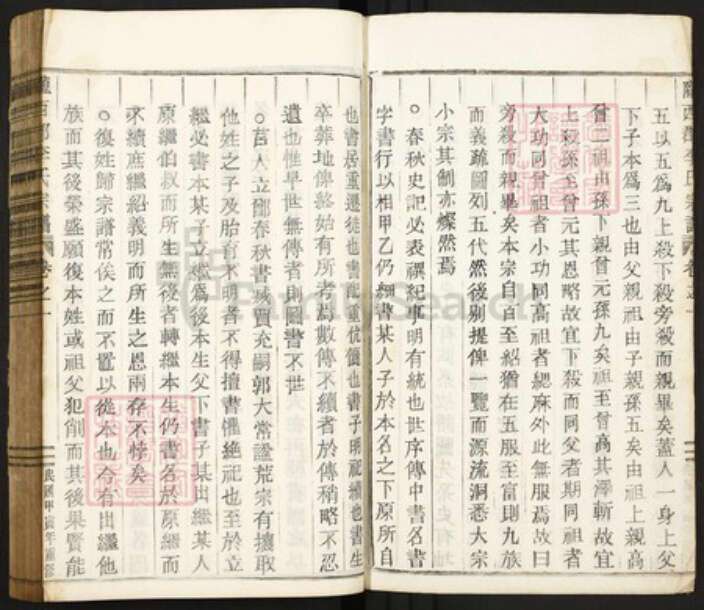 五以五爲九上殺下殺旁殺而親畢矣蓋人一身上父
下子本爲三也由父親祖由子親孫五矣由祖上親高
曾二祖由孫下親曾元孫九矣祖至曾高其澤斬故宜
上殺孫至曾元其恩略故宜下殺而同父者期同祖者
大功同曾祖者小功同高祖者緦麻外此無服焉故曰
旁殺而親畢矣本宗自百至紹猶在五服至富則九族
而義疏圖列五代然後別提俾一覽而源流洞悉大宗
小宗其制亦燦然焉
○春秋史記必表禩紀事明有統也世序傳中書名書
字書行以相甲乙仍細書某人子於本名之下原所自
也書居重遷徙也書配重伉儷也書子明祀續也書生
卒葬地俾終始有所考其數傳不續者於傳稍略不忍
遺也惟早世無傳者則圖書不世
○莒人立鄫春秋書城賈充嗣郭大常謚荒宗有攘取
他姓之子及胎育不明者不得擅書懼絶祀也至於立
繼必書本某子立繼爲後本生父下書子某出繼某人
原繼伯叔而所生無後者轉繼本生仍書名於原繼而
求續庶繼紹義明而所生之恩兩存不悖矣
○復姓歸宗譜常俟之而不置以從本也今有出繼他
族而其後榮盛願復本姓或祖父犯削而其後果賢能
隴西郡李氏宗譜 卷之一
民國甲寅年重修
FamilySearch